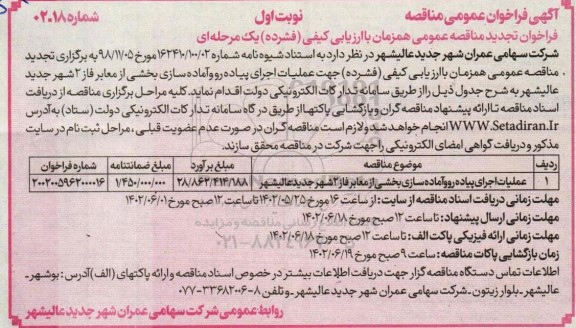 آگهی فراخوان عمومی مناقصه نوبت اول شماره ۰۲.۱۸
فراخوان تجدید مناقصه عمومی همزمان با ارزیابی کیفی (فشرده) یک مرحله ای
شرکت سهامی عمران شهر جدید عالیشهر در نظر دارد به استناد شیوه نامه شماره ۱۶۲۴۱۰/۱۰۰/۰۲ مورخ ۹۸/۱۱/۰۵ به برگزاری تجدید
مناقصه عمومی همزمان با ارزیابی کیفی (فشرده) جهت عملیات اجرای پیاده رو و آماده سازی بخشی از معابر فاز ۲ شهر جدید
عالیشهر به شرح جدول ذیل را از طریق سامانه تدارکات الکترونیکی دولت اقدام نماید. کلیه مراحل برگزاری مناقصه از دریافت
اسناد مناقصه تا ارائه پیشنهاد مناقصه گران و بازگشایی پاکتها از طریق درگاه سامانه تدارکات الکترونیکی دولت (ستاد) به آدرس
WWW.Setadiran.Ir انجام خواهد شد و لازم است مناقصه گران در صورت عدم عضویت قبلی، مراحل ثبت نام در سایت
مذکور و دریافت گواهی امضای الکترونیکی را جهت شرکت در مناقصه محقق سازند.
ردیف موضوع مناقصه مبلغ برآورد مبلغ ضمانتنامه شماره فراخوان
۱ عملیات اجرای پیاده رو و آماده سازی بخشی از معابر فاز ۲ شهر جدید عالیشهر ۲۸/۸۶۲/۴۱۴/۱۸۸ ۱/۴۵۰/۰۰۰/۰۰۰ ۲۰۰۲۰۰۵۹۶۲۰۰۰۰۱۶
مهلت زمانی دریافت اسناد مناقصه از سایت: از ساعت ۱۶ مورخ ۱۴۰۲/۰۵/۲۵ تا ساعت ۱۲ صبح مورخ ۱۴۰۲/۰۶/۰۱
مهلت زمانی ارسال پیشنهاد: تا ساعت ۱۲ صبح مورخ ۱۴۰۲/۰۶/۱۸
مهلت زمانی ارائه فیزیکی پاکت الف: تا ساعت ۱۲ صبح مورخ ۱۴۰۲/۰۶/۱۸
زمان بازگشایی پاکات مناقصه: ساعت ۹ صبح مورخ ۱۴۰۲/۰۶/۱۹
اطلاعات تماس دستگاه مناقصه گزار جهت دریافت اطلاعات بیشتر در خصوص اسناد مناقصه و ارائه پاکتهای (الف) آدرس: بوشهر-
عالیشهر- بلوار زیتون- شرکت سهامی عمران شهر جدید عالیشهر- و تلفن ۸-۳۳۶۸۲۰۰۶-۰۷۷
روابط عمومی شرکت سهامی عمران شهر جدید عالیشهر